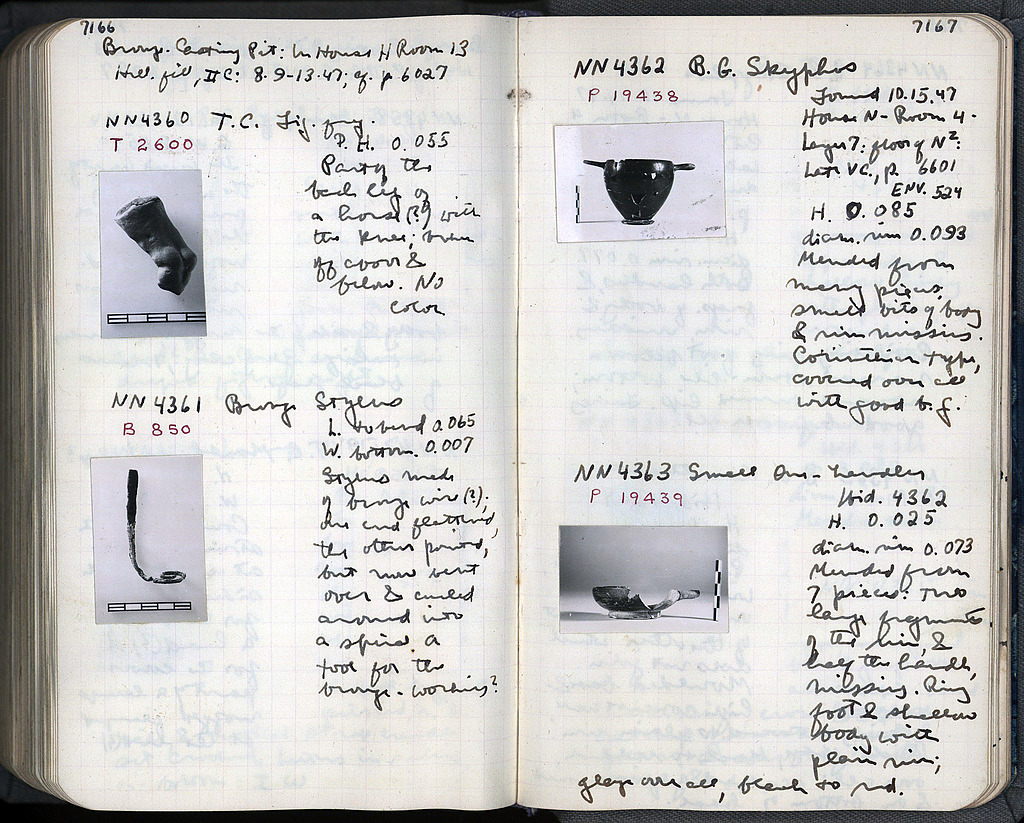 7166
Bronze-Casting Pit: in House H Room 13
Hell. fill, II C: 8-9-13-47; cf. p 6027
NN4360 T.C. Fig. frag.
T 2600
P.H. 0.055
Part of the
back leg of
a horse (?) with
the knee; broken
off above &
below. No
color
NN 4361 Bronze Stylus
B 850
L. to bend 0.065
W. bottom. 0.007
Stylus made
of bronze wire (?);
one end flattened,
the other pointed,
but now bent
over & curled
around into
a spiral. A
tool for the
bronze-working?
7167
NN4362 B.G. Skyphos
P 19438
Found 10.15.47
House N- Room 4-
Layer 7: floor of N²:
Late V C., p. 6601
ENV. 524
H. 0.085
diam. rim 0.093
Mended from
many pieces,
small bits of body
& rim missing.
Corinthian type,
covered over all
with good b.g.
NN4363 Small One-handler
P 19439
Ibid. 4362
H. 0.025
diam. rim 0.073
Mended from
7 pieces: two
large fragments
of the rim, &
half the handle,
missing. Ring
foot & shallow
body with
plain rim;
glaze over all, black to red.